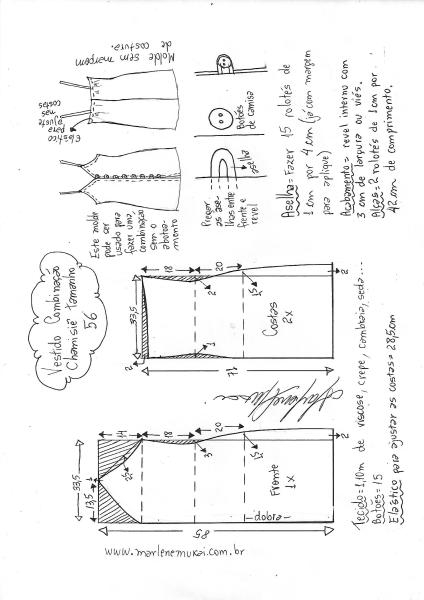 Vestido Combinação
Chamisiê tamanho
56
Este molde
pode ser
usado para
fazer uma
combinação
sem abotoa-
mento
Elástico
para
ajuste
nas
costas
Molde sem margem
de costura.
Pregar
as ase-
lhas entre
frente e
revel
aselha
Botões
de camisa
Aselha= Fazer 15 rolotês de
1cm por 4cm (já com margem
para aplique)
Acabamento= revel interno com
3 cm de largura ou viés.
Alça= 2 rolotês de 1cm por
42 cm de comprimento.
33,5
2
18
20
2
1,5
1
2
Costas
2x
71
33,5
13,5
14
18
20
3
1,5
2
Frente
1x
-dobra-
85
Tecido= 1,10m de viscose, crepe, cambraia, seda...
Botões= 15
Elástico para ajustar as costas= 28,5cm
www.marlenemukai.com.br